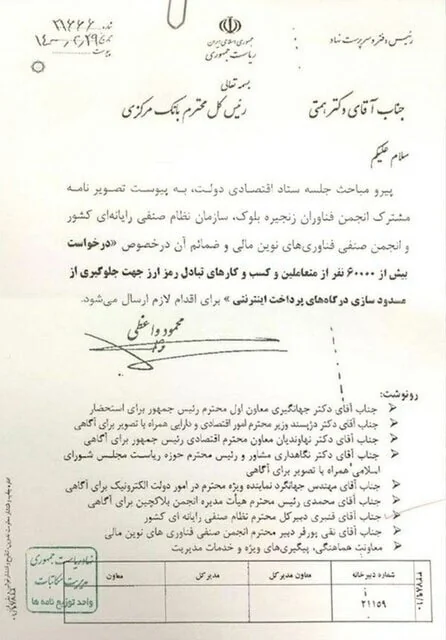 رئیس دفتر و سرپرست نهاد
جمهوری اسلامی ایران
ریاست جمهوری
شماره ۲۱۶۶۶
تاریخ ۱۴۰۰/۲/۲۹
پیوست
بسمه تعالی
جناب آقای دکتر همتی
رئیس کل محترم بانک مرکزی
سلام علیکم
پیرو مباحث جلسه ستاد اقتصادی دولت، به پیوست تصویر نامه
مشترک انجمن فناوران زنجیره بلوک، سازمان نظام صنفی رایانه‌ای کشور
و انجمن صنفی فناوری‌های نوین مالی و ضمائم آن درخصوص «درخواست
بیش از ۶۰۰۰۰ نفر از متعاملین و کسب و کارهای تبادل رمز ارز جهت جلوگیری از
مسدود سازی درگاه‌های پرداخت اینترنتی» برای اقدام لازم ارسال می‌شود.
محمود واعظی
رونوشت:
جناب آقای دکتر جهانگیری معاون اول محترم رئیس جمهور برای استحضار
جناب آقای دکتر دژپسند وزیر محترم امور اقتصادی و دارایی همراه با تصویر برای آگاهی
جناب آقای دکتر نهاوندیان معاون محترم اقتصادی رئیس جمهور برای آگاهی
جناب آقای دکتر نگاهداری مشاور و رئیس محترم حوزه ریاست مجلس شورای
اسلامی همراه با تصویر برای آگاهی
جناب آقای مهندس جهانگرد نماینده ویژه محترم در امور دولت الکترونیک برای آگاهی
جناب آقای محمدی رئیس محترم هیأت مدیره انجمن بلاکچین برای آگاهی
جناب آقای قنبری دبیرکل محترم نظام صنفی رایانه ای کشور
جناب آقای نقی پورفر دبیر محترم انجمن صنفی فناوری های نوین مالی
معاونت هماهنگی، پیگیری‌های ویژه و خدمات مدیریت
شماره دبیرخانه
معاون مدیرکل
مدیرکل
معاون
۲۱۱۵۹
نهاد ریاست جمهوری
مدیریت مکاتبات
واحد توزیع نامه ها